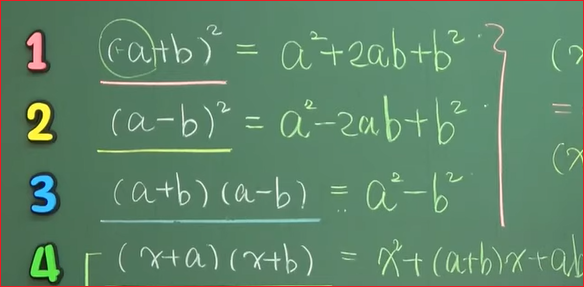 1 (-a+b)² = a²+2ab+b²
2 (a-b)² = a²-2ab+b²
3 (a+b)(a-b) = a²-b²
4 (x+a)(x+b) = x²+(a+b)x+ab
(x
=
(x